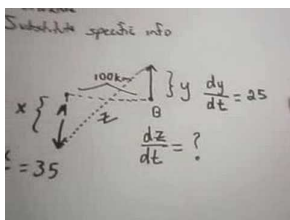 Substitute specific info
100km
} y dy/dt = 25
x { A
z B
dz/dt = ?
= 35